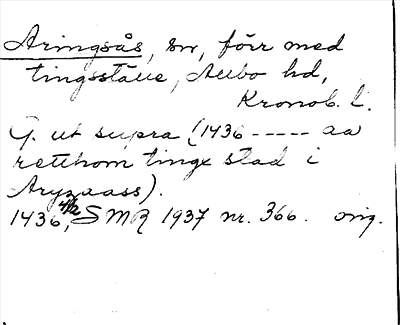 Aringsås, sn, förr med
tingsställe, Allbo hd,
Kronob. l.
G. ut supra (1436 ----- aa
retthom tinge stad i
Aryzaass).
1436 4/2, SMR 1937 nr. 366. orig.